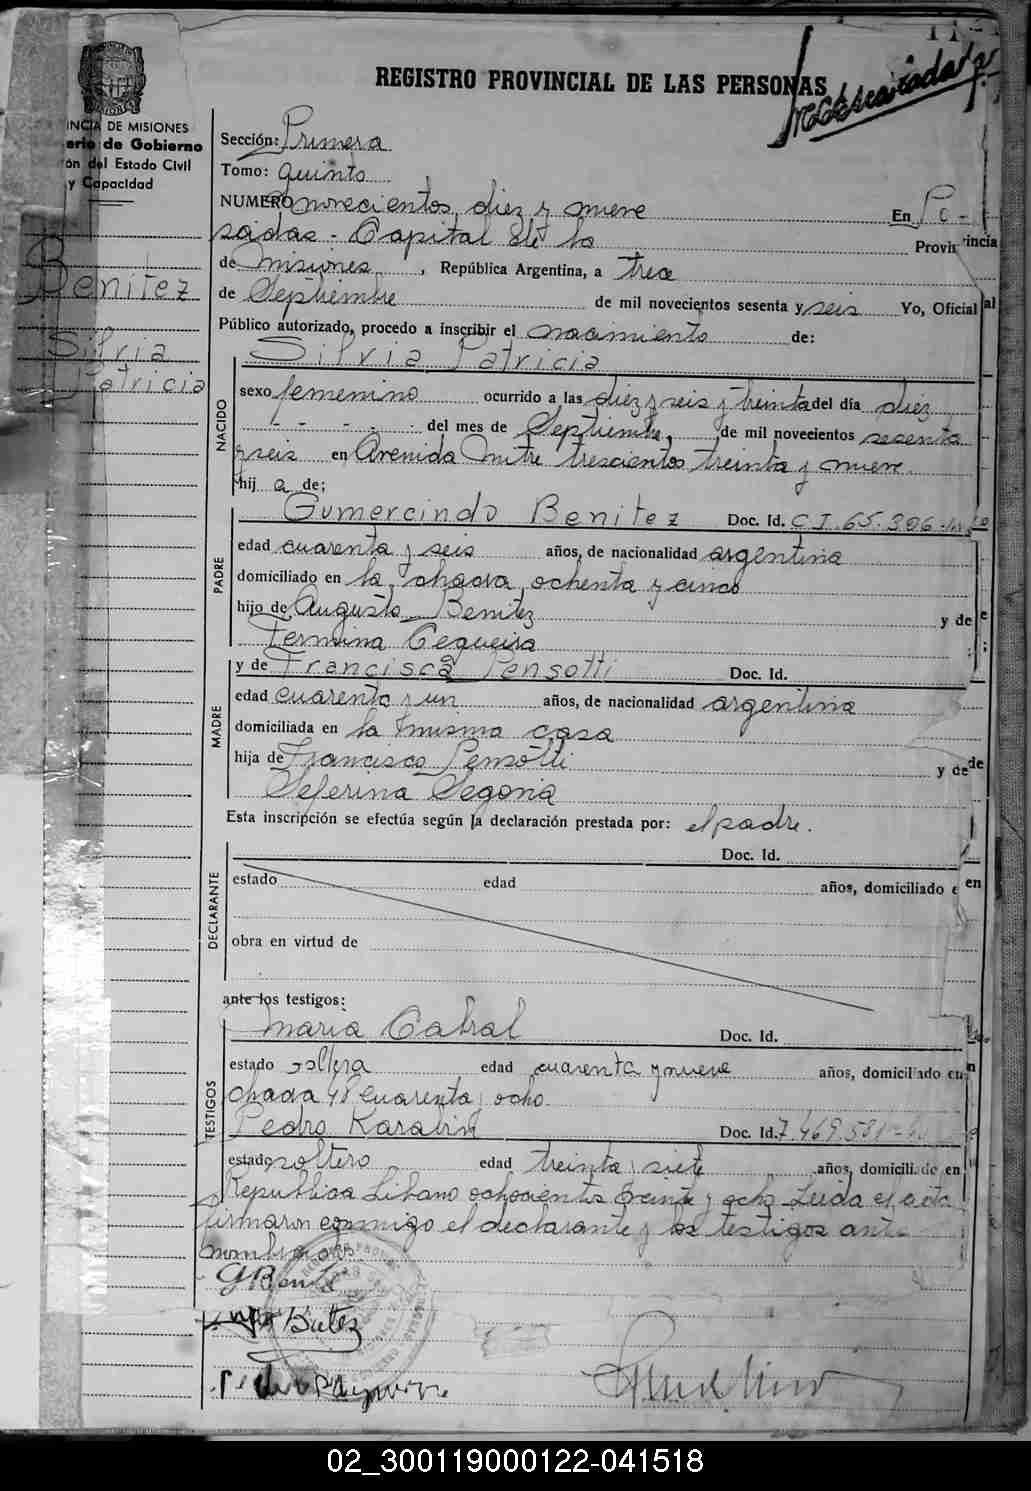 REGISTRO PROVINCIAL DE LAS PERSONAS
INCIA DE MISIONES
erio de Gobierno
ón del Estado Civil
y Capacidad
Benitez
Silvia
Patricia
Sección: Primera
Tomo: quinto
NUMERO novecientos diez y nueve En Po-
sadas - Capital de la Provincia
de Misiones, República Argentina, a trece
de Septiembre de mil novecientos sesenta y seis Yo, Oficial
Público autorizado, procedo a inscribir el nacimiento de:
Silvia Patricia
NACIDO
sexo femenino ocurrido a las diez y seis y treinta del día diez
del mes de Septiembre, de mil novecientos sesenta
y seis en Avenida Mitre trescientos treinta y nueve.
hij a de;
Gumercindo Benitez Doc. Id. C.I. 65.306
PADRE
edad cuarenta y seis años, de nacionalidad argentina
domiciliado en la chacra ochenta y cinco
hijo de Augusto Benitez y de
Fermina Cequeira
y de Francisca Pensotti Doc. Id.
MADRE
edad cuarenta y un años, de nacionalidad argentina
domiciliada en la misma casa
hija de Francisco Pensotti y de
Seferina Segovia
Esta inscripción se efectúa según la declaración prestada por: el padre.
Doc. Id.
DECLARANTE
estado edad años, domiciliado en
obra en virtud de
ante los testigos:
Maria Cabral Doc. Id.
TESTIGOS
estado soltera edad cuarenta y nueve años, domiciliado en
chacra 48 cuarenta y ocho.
Pedro Doc. Id. 7.469.581
estado soltero edad treinta y siete años, domiciliado en
Republica Libano ochocientos treinta y ocho Leida el acta
firmaron conmigo el declarante y los testigos ante
nombrados.
02_300119000122-041518